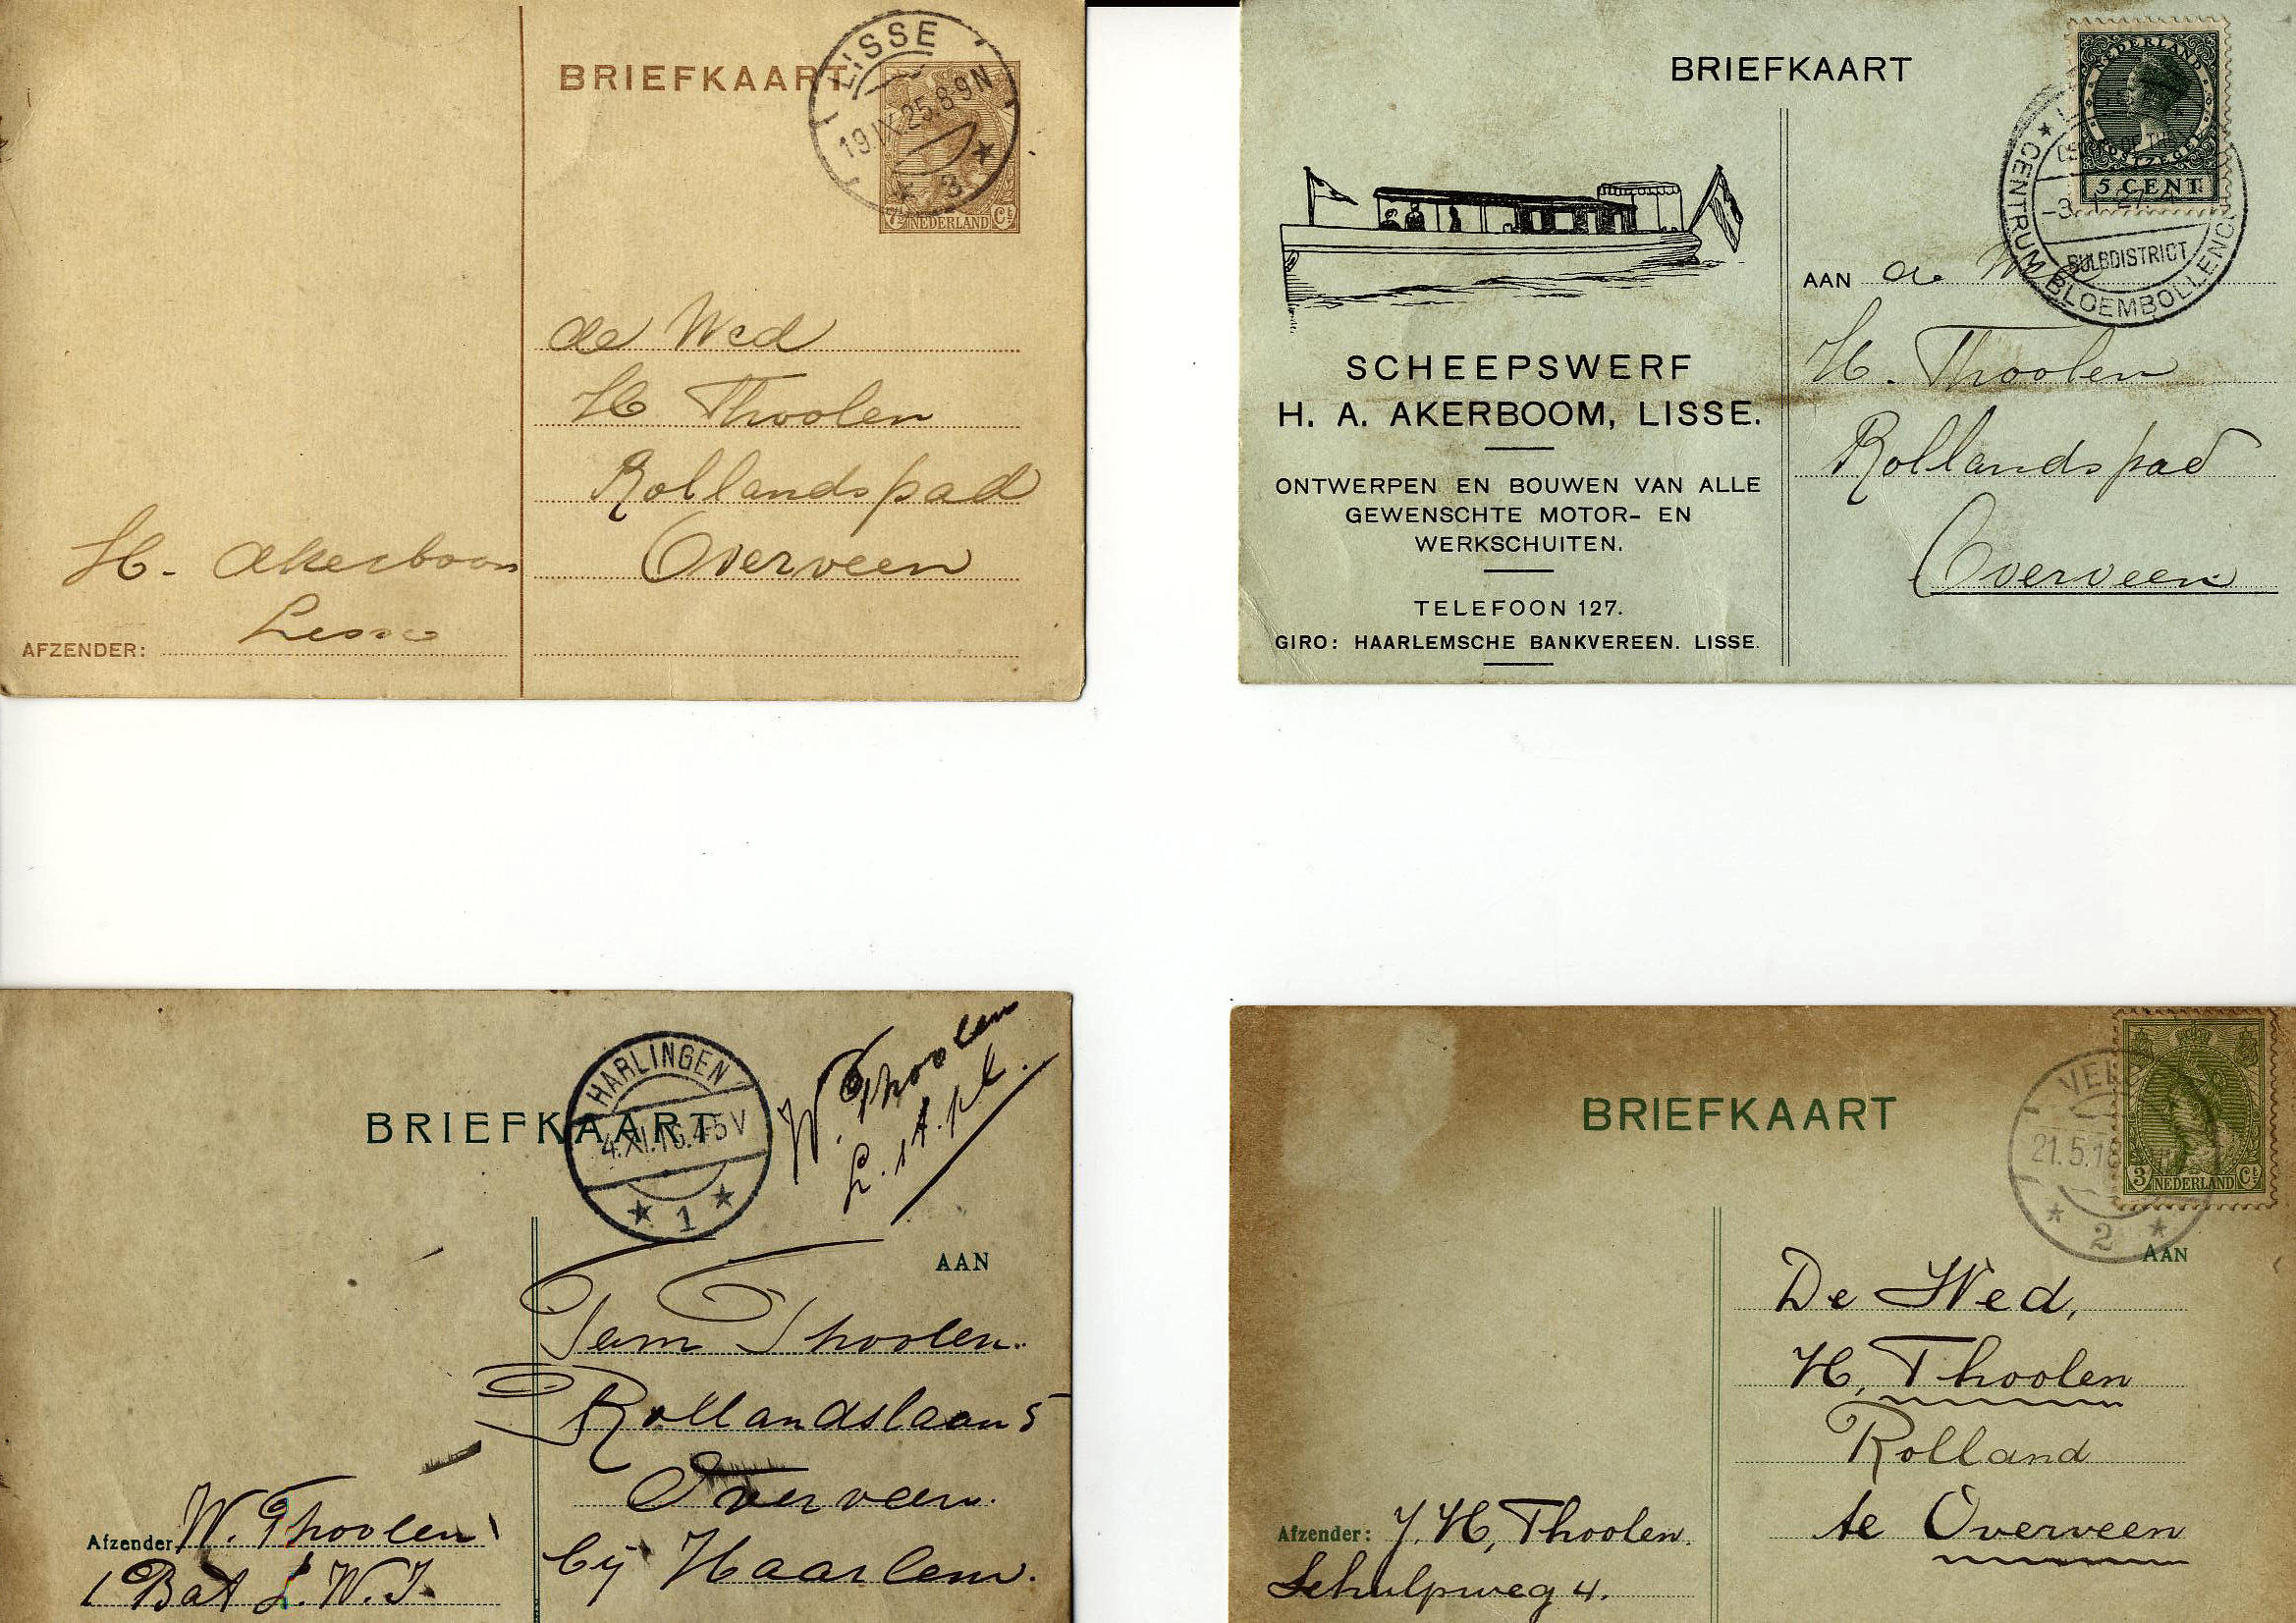 BRIEFKAART
LISSE
19.IX.25.8-9N
3
7½ NEDERLAND Ct
de Wed
H Thoolen
Rollandspad
Overveen
H. Akerboom
Lisse
AFZENDER:
BRIEFKAART
NEDERLAND
POSTZEGEL
5 CENT
-3. 1 27. 4
BULBDISTRICT
CENTRUM BLOEMBOLLEN
SCHEEPSWERF
H. A. AKERBOOM, LISSE.
ONTWERPEN EN BOUWEN VAN ALLE
GEWENSCHTE MOTOR- EN
WERKSCHUITEN.
TELEFOON 127.
GIRO: HAARLEMSCHE BANKVEREEN. LISSE.
AAN de Wed
H. Thoolen
Rollandspad
Overveen
BRIEFKAART
HARLINGEN
4.XI.16.4-5V
1
W. Thoolen
L.st.pl.
AAN
Tem Thoolen.
Rollandslaan 5
Overveen.
bij Haarlem.
Afzender W. Thoolen
1 Bat L.W.I.
BRIEFKAART
VEL
21.5.18
2
3 NEDERLAND Ct
AAN
De Wed,
H, Thoolen
Rolland
te Overveen
Afzender: J. H, Thoolen.
Schulpweg 4.